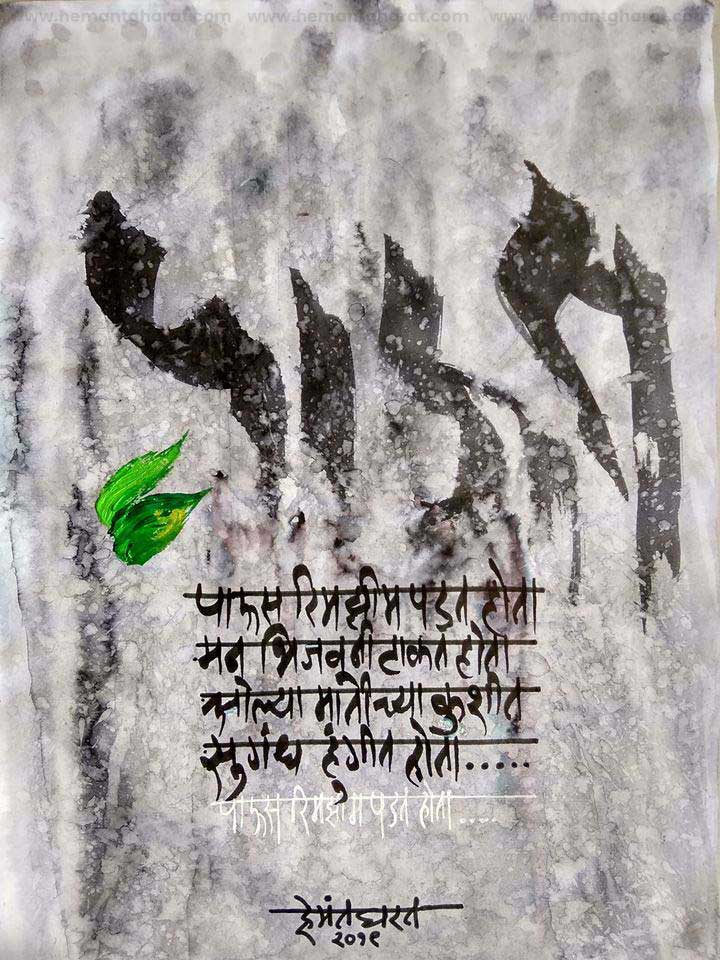 www.hemantgharat.com www.hemantgharat.com www.hemantgharat.com
पाऊस
पाऊस रिमझीम पडत होता
मन भिजवूनी टाकत होता
ओल्या मातीच्या कुशीत
सुगंध हुंगीत होता.....
पाऊस रिमझीम पडत होता.....
हेमंत घरत
२०१९